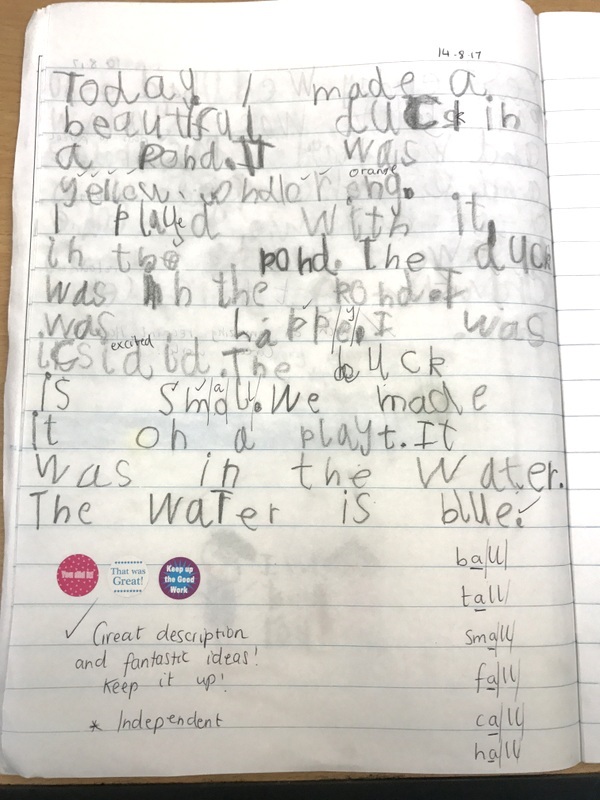 14.8.17
Today I made a
beautiful duck in
a pond. It was
orange
yellow. and
I played with it
in the pond. The duck
was in the pond. I
y
was happe. I was
excited
icsidid. The duck
a
is small. We made
it on a playt. It
was in the water.
The water is blue.
You did it!
That was Great!
Keep up the Good Work
Great description
and fantastic ideas!
Keep it up!
* Independent
ball
tall
small
fall
call
hall